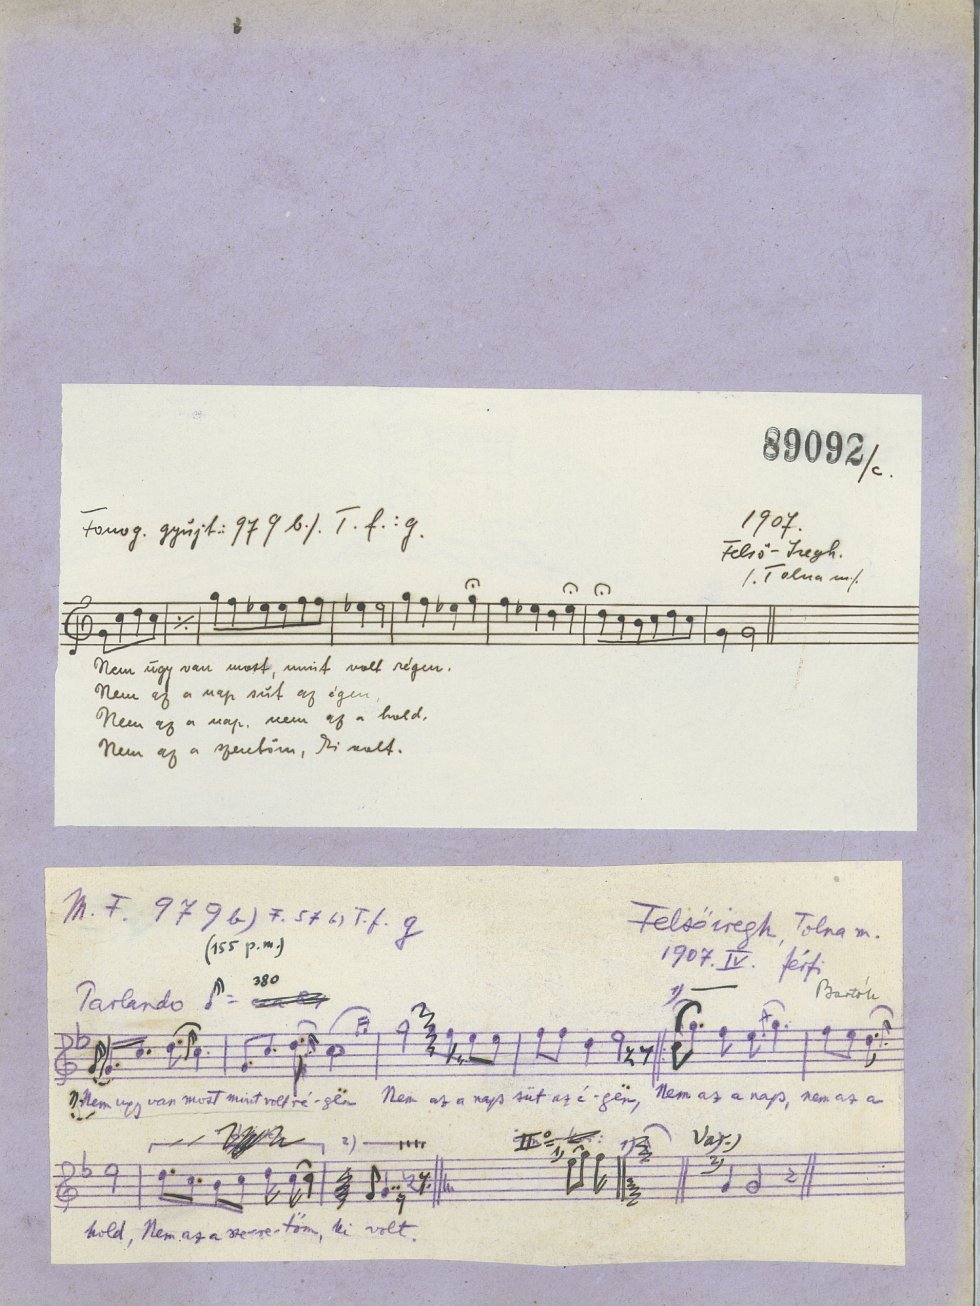 89092/c.
Fonog. gyűjt.: 979 b./. T. f.: g.
1907.
Felső-Iregh.
/. Tolna m/.
Nem úgy van most, mint volt régen.
Nem az a nap süt az égen,
Nem az a nap, nem az a hold.
Nem az a szeretőm, ki volt.
M. F. 979 b) F. 57 b) T. f. g
(155 p.m.)
Felsőiregh, Tolna m.
1907. IV. férfi
Bartók
Parlando = 380
1)
1) Nem ugy van most mint volt ré-gën Nem az a nap süt az é-gën, Nem az a nap, nem az a
2) II 1) 1) Var. 2)
hold, Nem az a szere-tőm, ki volt.